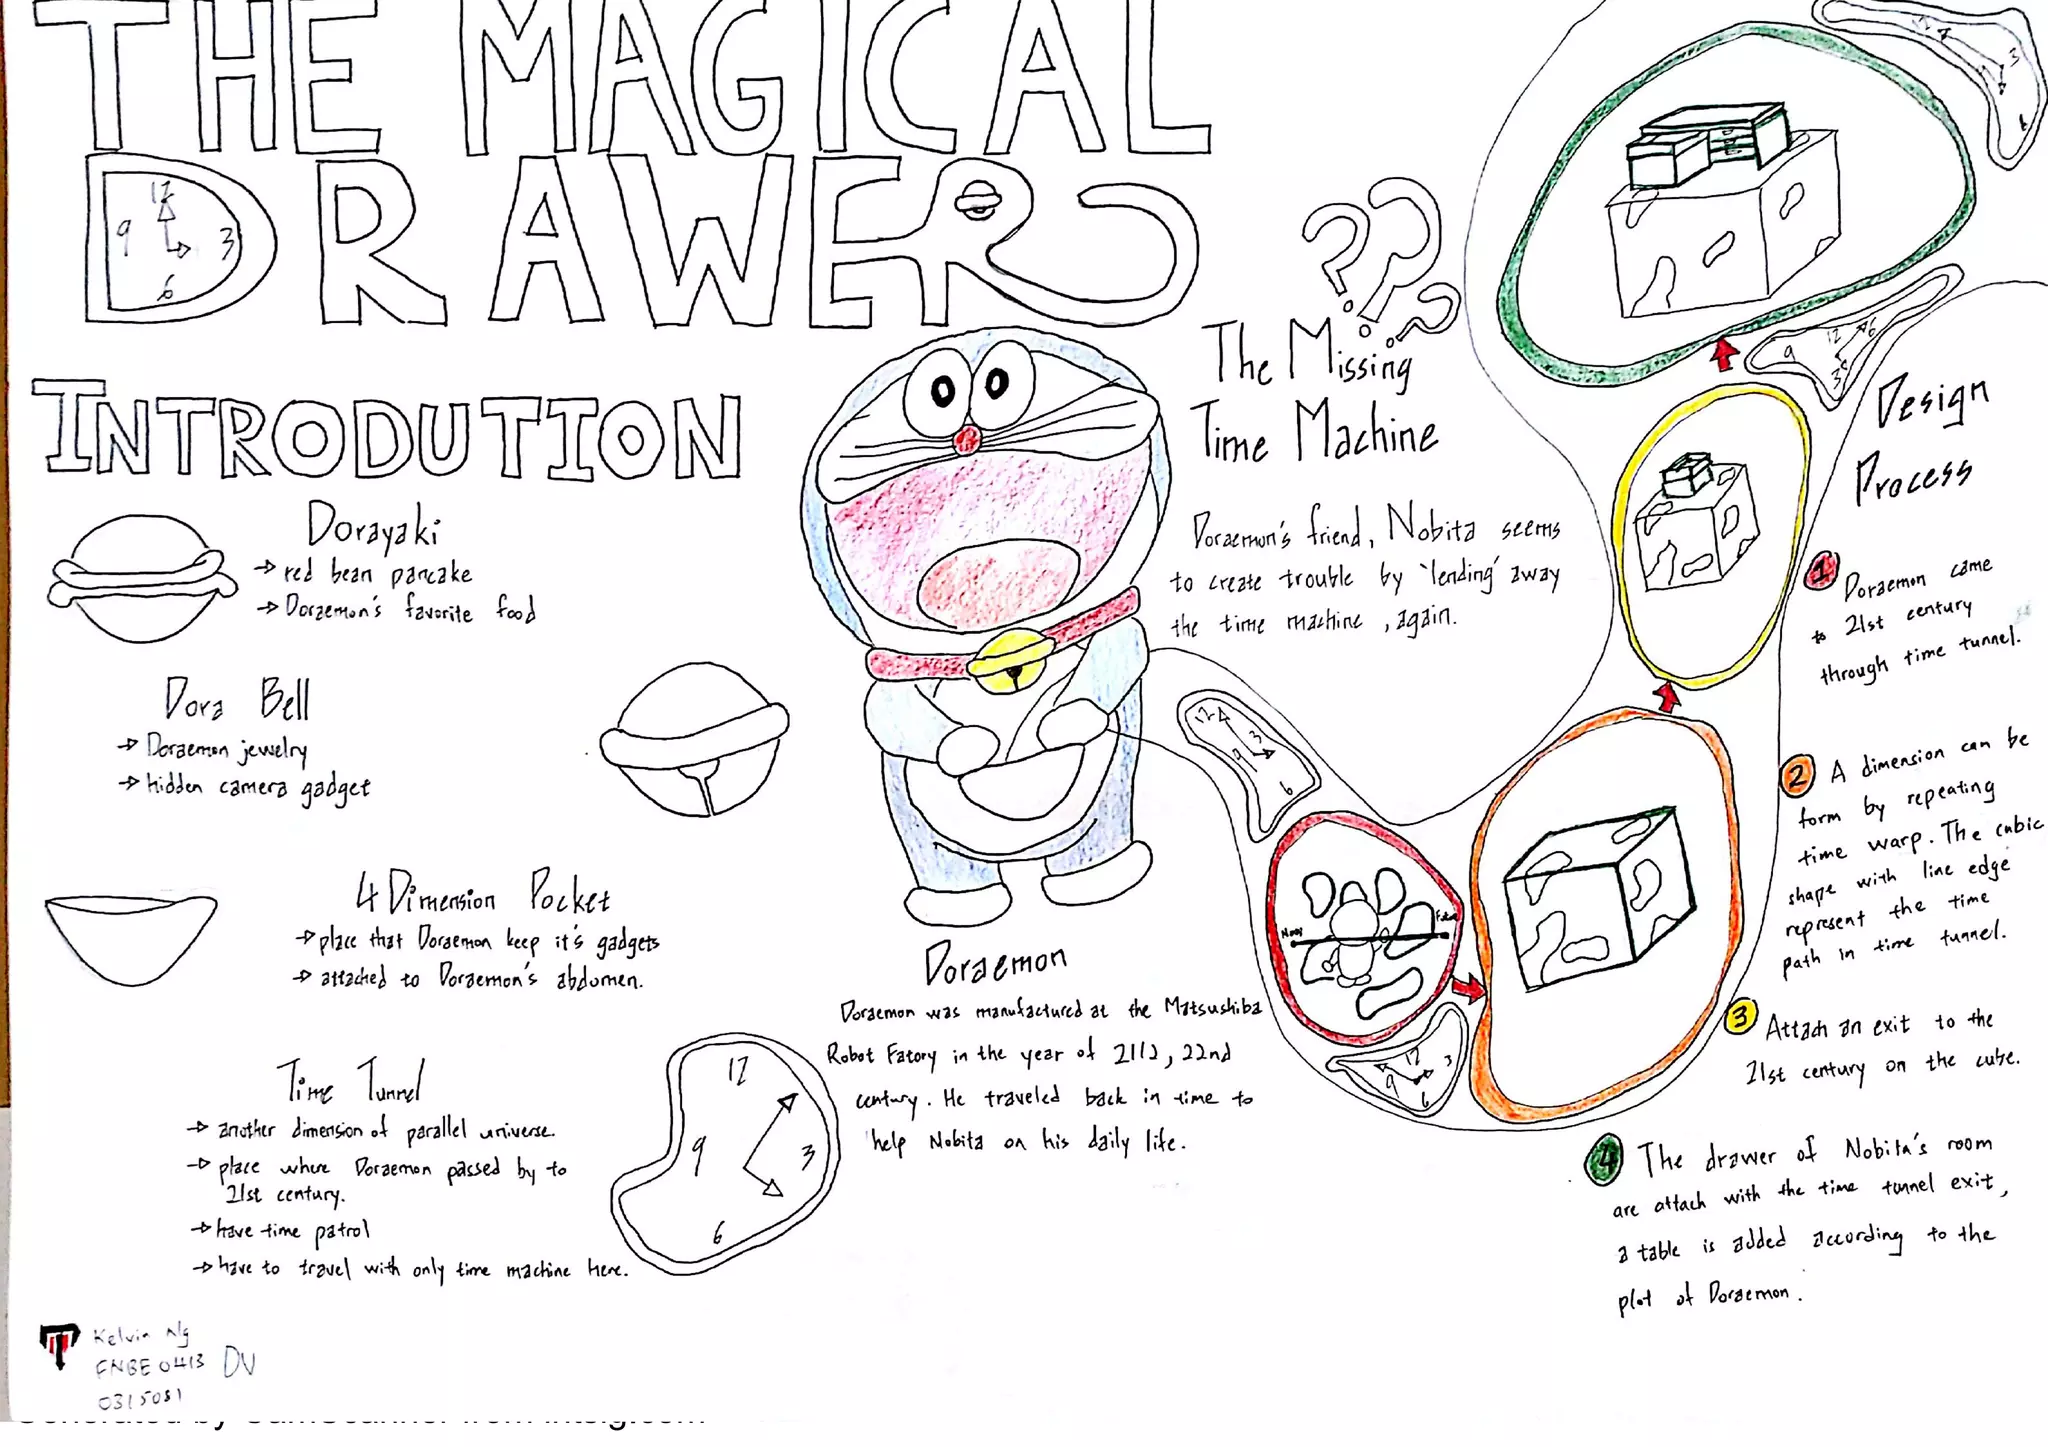 THE MAGICAL
DRAWER
12
9
3
6
INTRODUTION
Dorayaki
→ red bean pancake
→ Doraemon's favorite food
Dora Bell
→ Doraemon jewelry
→ hidden camera gadget
4 Dimension Pocket
→ place that Doraemon keep it's gadgets
→ attached to Doraemon's abdomen.
Time Tunnel
→ another dimension of parallel universe.
→ place where Doraemon passed by to
21st century.
→ have time patrol
→ have to travel with only time machine here.
12
9
3
6
Doraemon
Doraemon was manufactured at the Matsushiba
Robot Fatory in the year of 2112, 22nd
century. He traveled back in time to
help Nobita on his daily life.
???
The Missing
Time Machine
Doraemon's friend, Nobita seems
to create trouble by 'lending' away
the time machine, again.
12
3
9
6
12
3
9
6
12
3
6
9
12
6
3
Design
Process
1 Doraemon came
to 21st century
through time tunnel.
2 A dimension can be
form by repeating
time warp. The cubic
shape with line edge
represent the time
path in time tunnel.
3 Attach an exit to the
21st century on the cube.
4 The drawer of Nobita's room
are attach with the time tunnel exit,
a table is added according to the
plot of Doraemon.
Kelvin Ng
FNBE 0413 DV
0315081